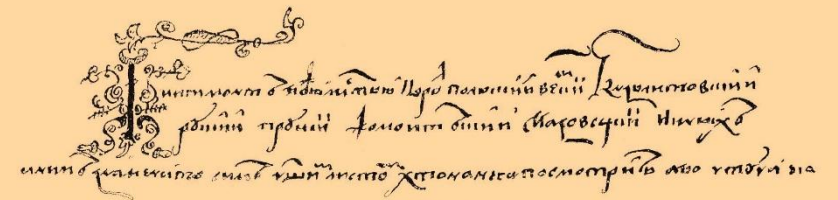 Жикгимонтъ бжю млстью король полскии великии кнзь литовскии
рускии прускии жомоитскии мазовецкии и иныхъ
чинимъ знаменито симъ нашимъ листомъ хто на него посмотритъ або чтучи его